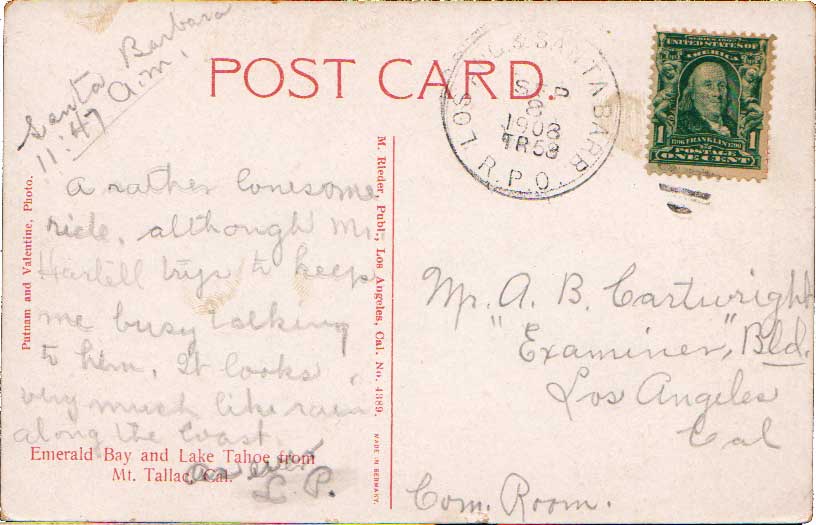 Santa Barbara
11:47 a.m.
POST CARD.
LOS ANG. & SANTA BARB.
SEP
6
1908
TR 53
R.P.O.
SERIES 1902
UNITED STATES OF
AMERICA
1706 FRANKLIN 1790
1 POSTAGE 1
ONE CENT
Putnam and Valentine, Photo.
A rather lonesome
ride, although Mr.
Hartell trys to keep
me busy talking
to him. It looks
very much like rain
along the coast.
as ever
L. P.
Emerald Bay and Lake Tahoe from
Mt. Tallac, Cal.
M. Rieder, Publ., Los Angeles, Cal. No. 4389.
MADE IN GERMANY.
Mr. A. B. Cartwright
"Examiner," Bld.
Los Angeles
Cal
Com. Room.